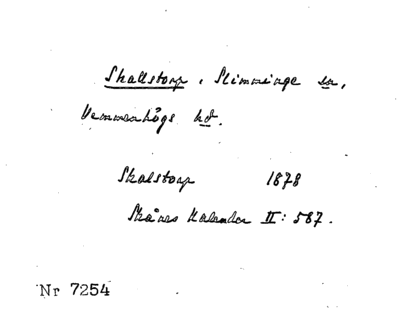 Skallstorp, Slimminge sn,
Vemmenhögs hd.
Skalstorp 1878
Skånes Kalender II: 587.
Nr 7254